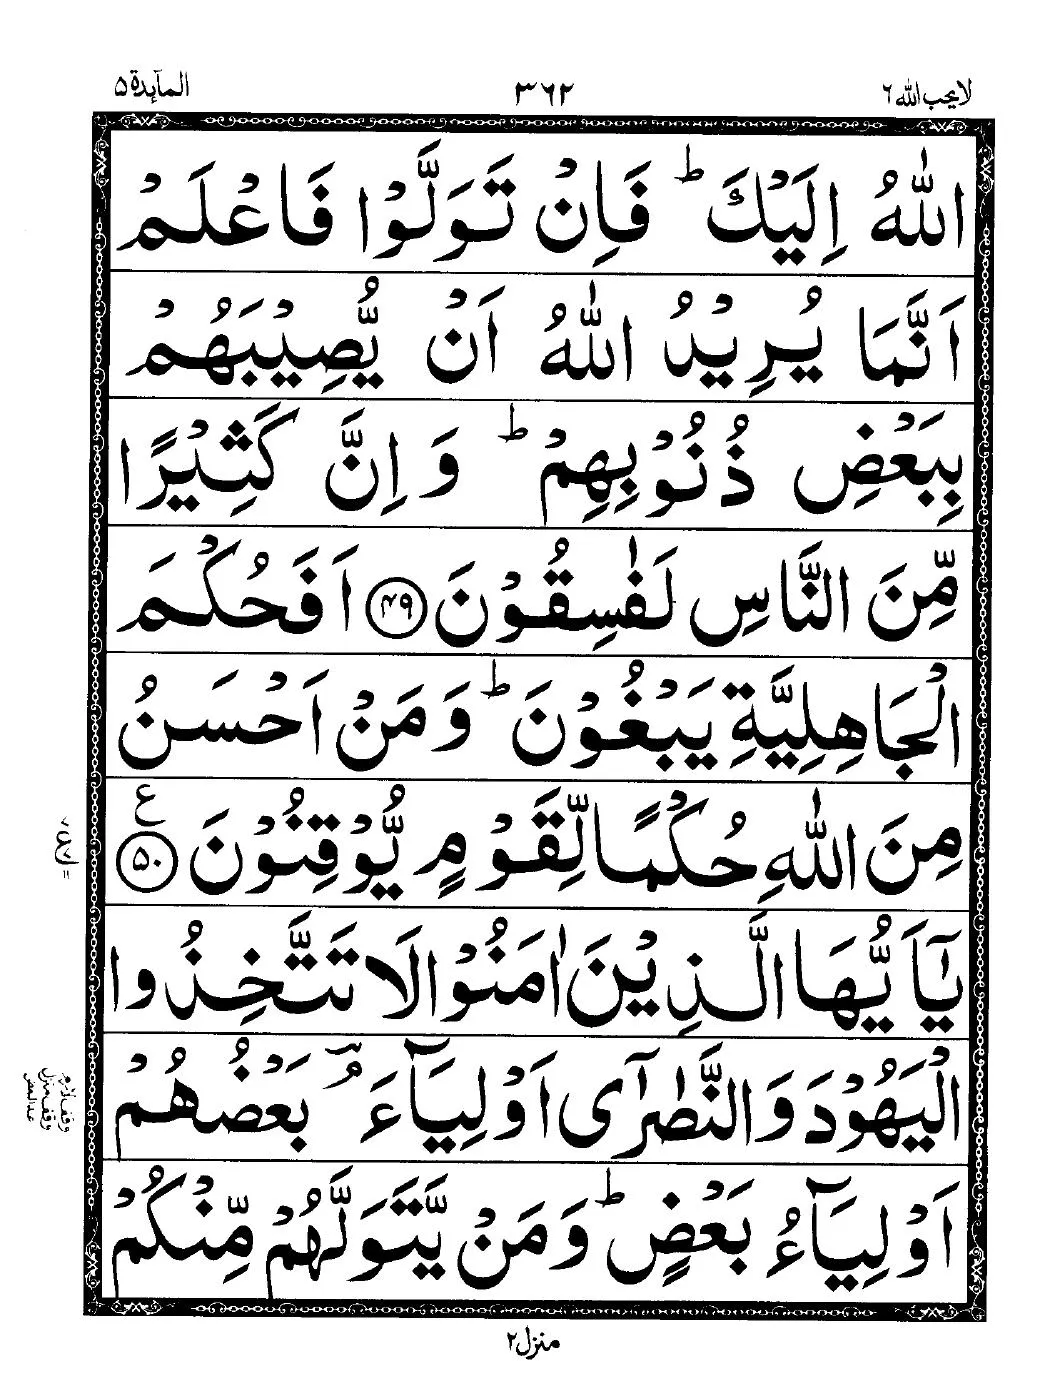 لا يحب الله ٦
٣٦٢
المآىِٕدة ٥
اللّٰهُ اِلَيْكَ ؕ فَاِنْ تَوَلَّوْا فَاعْلَمْ
اَنَّمَا يُرِيْدُ اللّٰهُ اَنْ يُّصِيْبَهُمْ
بِبَعْضِ ذُنُوْبِهِمْ ؕ وَ اِنَّ كَثِيْرًا
مِّنَ النَّاسِ لَفٰسِقُوْنَ ﴿۴۹﴾ اَفَحُكْمَ
الْجَاهِلِيَّةِ يَبْغُوْنَ ؕ وَ مَنْ اَحْسَنُ
مِنَ اللّٰهِ حُكْمًا لِّقَوْمٍ يُّوْقِنُوْنَ ﴿۵۰﴾ ع
يٰۤاَيُّهَا الَّذِيْنَ اٰمَنُوْا لَا تَتَّخِذُوا
الْيَهُوْدَ وَ النَّصٰرٰۤى اَوْلِيَآءَ ؔۘ بَعْضُهُمْ
اَوْلِيَآءُ بَعْضٍ ؕ وَ مَنْ يَّتَوَلَّهُمْ مِّنْكُمْ
ع
١١
وقف لازم
وقف منزل
منزل ٢